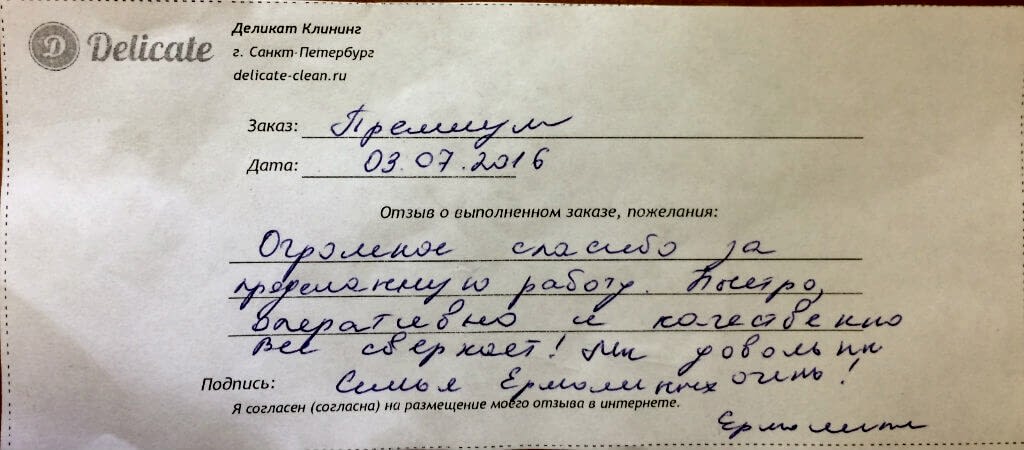 D Delicate
Деликат Клининг
г. Санкт-Петербург
delicate-clean.ru
Заказ: Премиум
Дата: 03.07.2016
Отзыв о выполненном заказе, пожелания:
Огромное спасибо за
проделанную работу. Быстро,
оперативно и качественно
Все сверкает! Мы довольны
очень!
Подпись: Семья Ермолиных
Я согласен (согласна) на размещение моего отзыва в интернете.